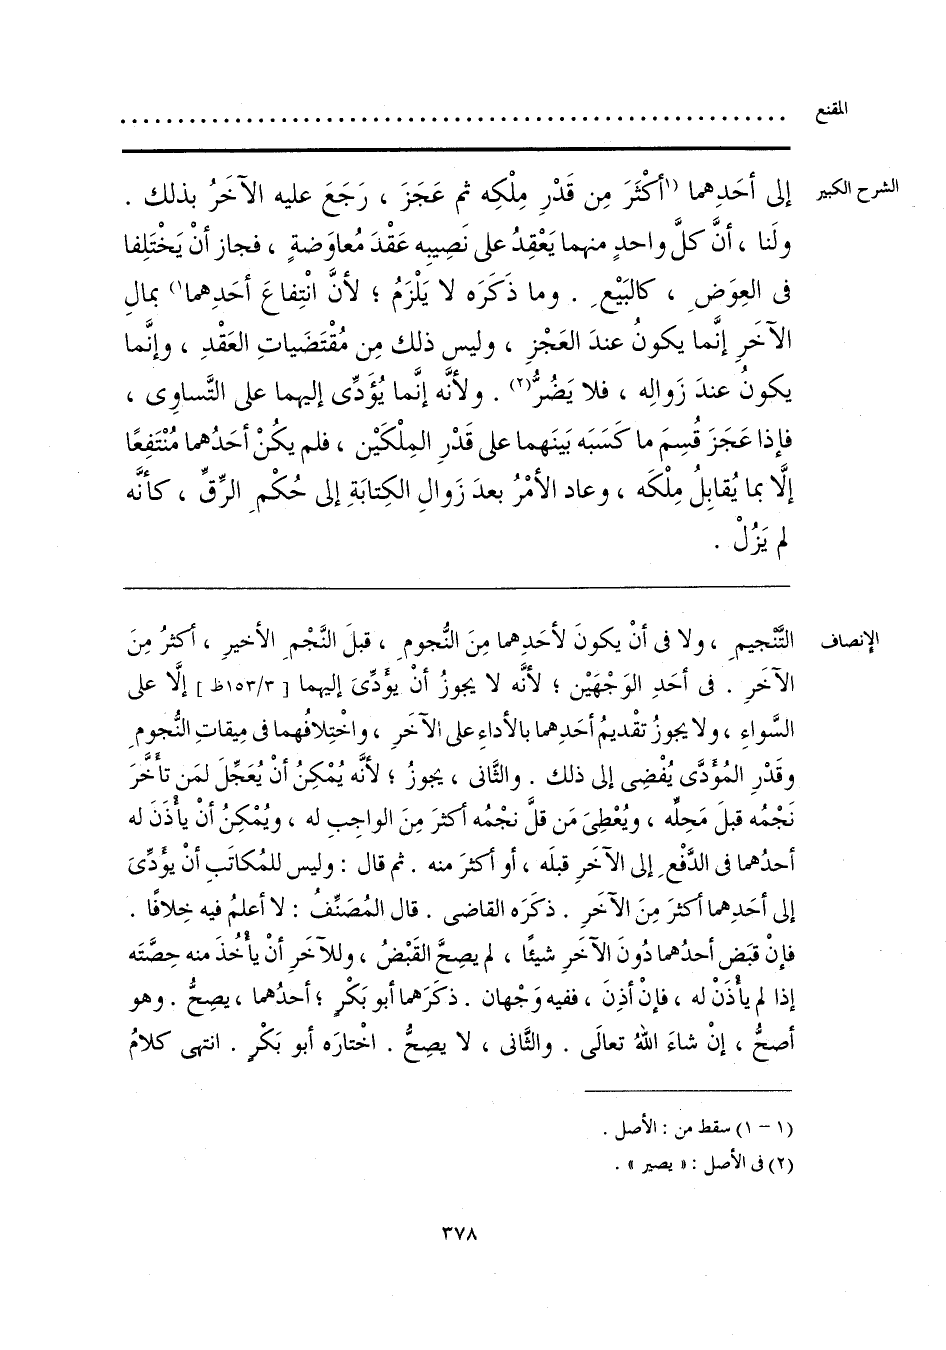 المقنع ............................................................
الشرح الكبير إلى أحَدِهما (١أكْثَرَ مِن قَدْرِ مِلْكِه ثم عَجَزَ ، رَجَعَ عليه الآخَرُ بذلك .
ولَنا ، أنَّ كلَّ واحدٍ منهما يَعْقِدُ على نَصِيبِه عَقْدَ مُعاوَضةٍ ، فجاز أنْ يَخْتَلِفا
فى العِوَضِ ، كالبَيْعِ . وما ذَكَرَه لا يَلْزَمُ ؛ لأنَّ انْتِفاعَ أحَدِهما١) بمالِ
الآخَرِ إنَّما يكونُ عندَ العَجْزِ ، وليس ذلك مِن مُقْتَضَياتِ العَقْدِ ، وإنَّما
يكونُ عندَ زَوالِه ، فلا يَضُرُّ(٢) . ولأنَّه إنَّما يُؤَدِّى إليهما على التَّساوِى ،
فإذا عَجَزَ قُسِمَ ما كَسَبَه بَينَهما على قَدْرِ المِلْكَيْن ، فلم يكُنْ أحَدُهما مُنْتَفِعًا
إلَّا بما يُقابِلُ مِلْكَه ، وعاد الأمْرُ بعدَ زَوالِ الكِتابَةِ إلى حُكْمِ الرِّقِّ ، كأنَّه
لم يَزُلْ .
الإنصاف التَّنْجيمِ ، ولا فى أنْ يكونَ لأحَدِهما مِنَ النُّجومِ ، قبلَ النَّجْمِ الأخيرِ ، أكثرُ مِنَ
الآخَرِ . فى أحَدِ الوَجْهَيْن ؛ لأنَّه لا يجوزُ أنْ يؤَدِّىَ إليهما [ ١٥٣/٣ظ ] إلَّا على
السَّواءِ ، ولا يجوزُ تقْديمُ أحَدِهما بالأداءِ على الآخَرِ ، واخْتِلافُهما فى مِيقاتِ النُّجومِ
وقَدْرِ المُؤَدَّى يُفْضِى إلى ذلك . والثَّانى ، يجوزُ ؛ لأنَّه يُمْكِنُ أنْ يُعَجِّلَ لمَن تأخَّرَ
نَجْمُه قبلَ مَحِلِّه ، ويُعْطِىَ مَن قلَّ نجْمُه أكثرَ مِنَ الواجبِ له ، ويُمْكِنُ أنْ يأْذَنَ له
أحدُهما فى الدَّفْعِ إلى الآخَرِ قبلَه ، أو أكثرَ منه . ثم قال : وليس للمُكاتَبِ أنْ يؤَدِّىَ
إلى أحَدِهما أكثرَ مِنَ الآخَرِ . ذكَرَه القاضى . قال المُصَنِّفُ : لا أعلمُ فيه خِلافًا .
فإنْ قبَض أحدُهما دُونَ الآخَرِ شيئًا ، لم يصِحَّ القَبْضُ ، وللآخَرِ أنْ يأْخُذَ منه حِصَّتَه
إذا لم يأْذَنْ له ، فإنْ أذِنَ ، ففيه وَجْهان . ذكَرَهما أبو بَكْرٍ ؛ أحدُهما ، يصِحُّ . وهو
أصحُّ ، إنْ شاءَ اللهُ تعالَى . والثَّانى ، لا يصِحُّ . اخْتارَه أبو بَكْرٍ . انتهى كلامُ
(١ - ١) سقط من : الأصل .
(٢) فى الأصل : « يصير » .
٣٧٨